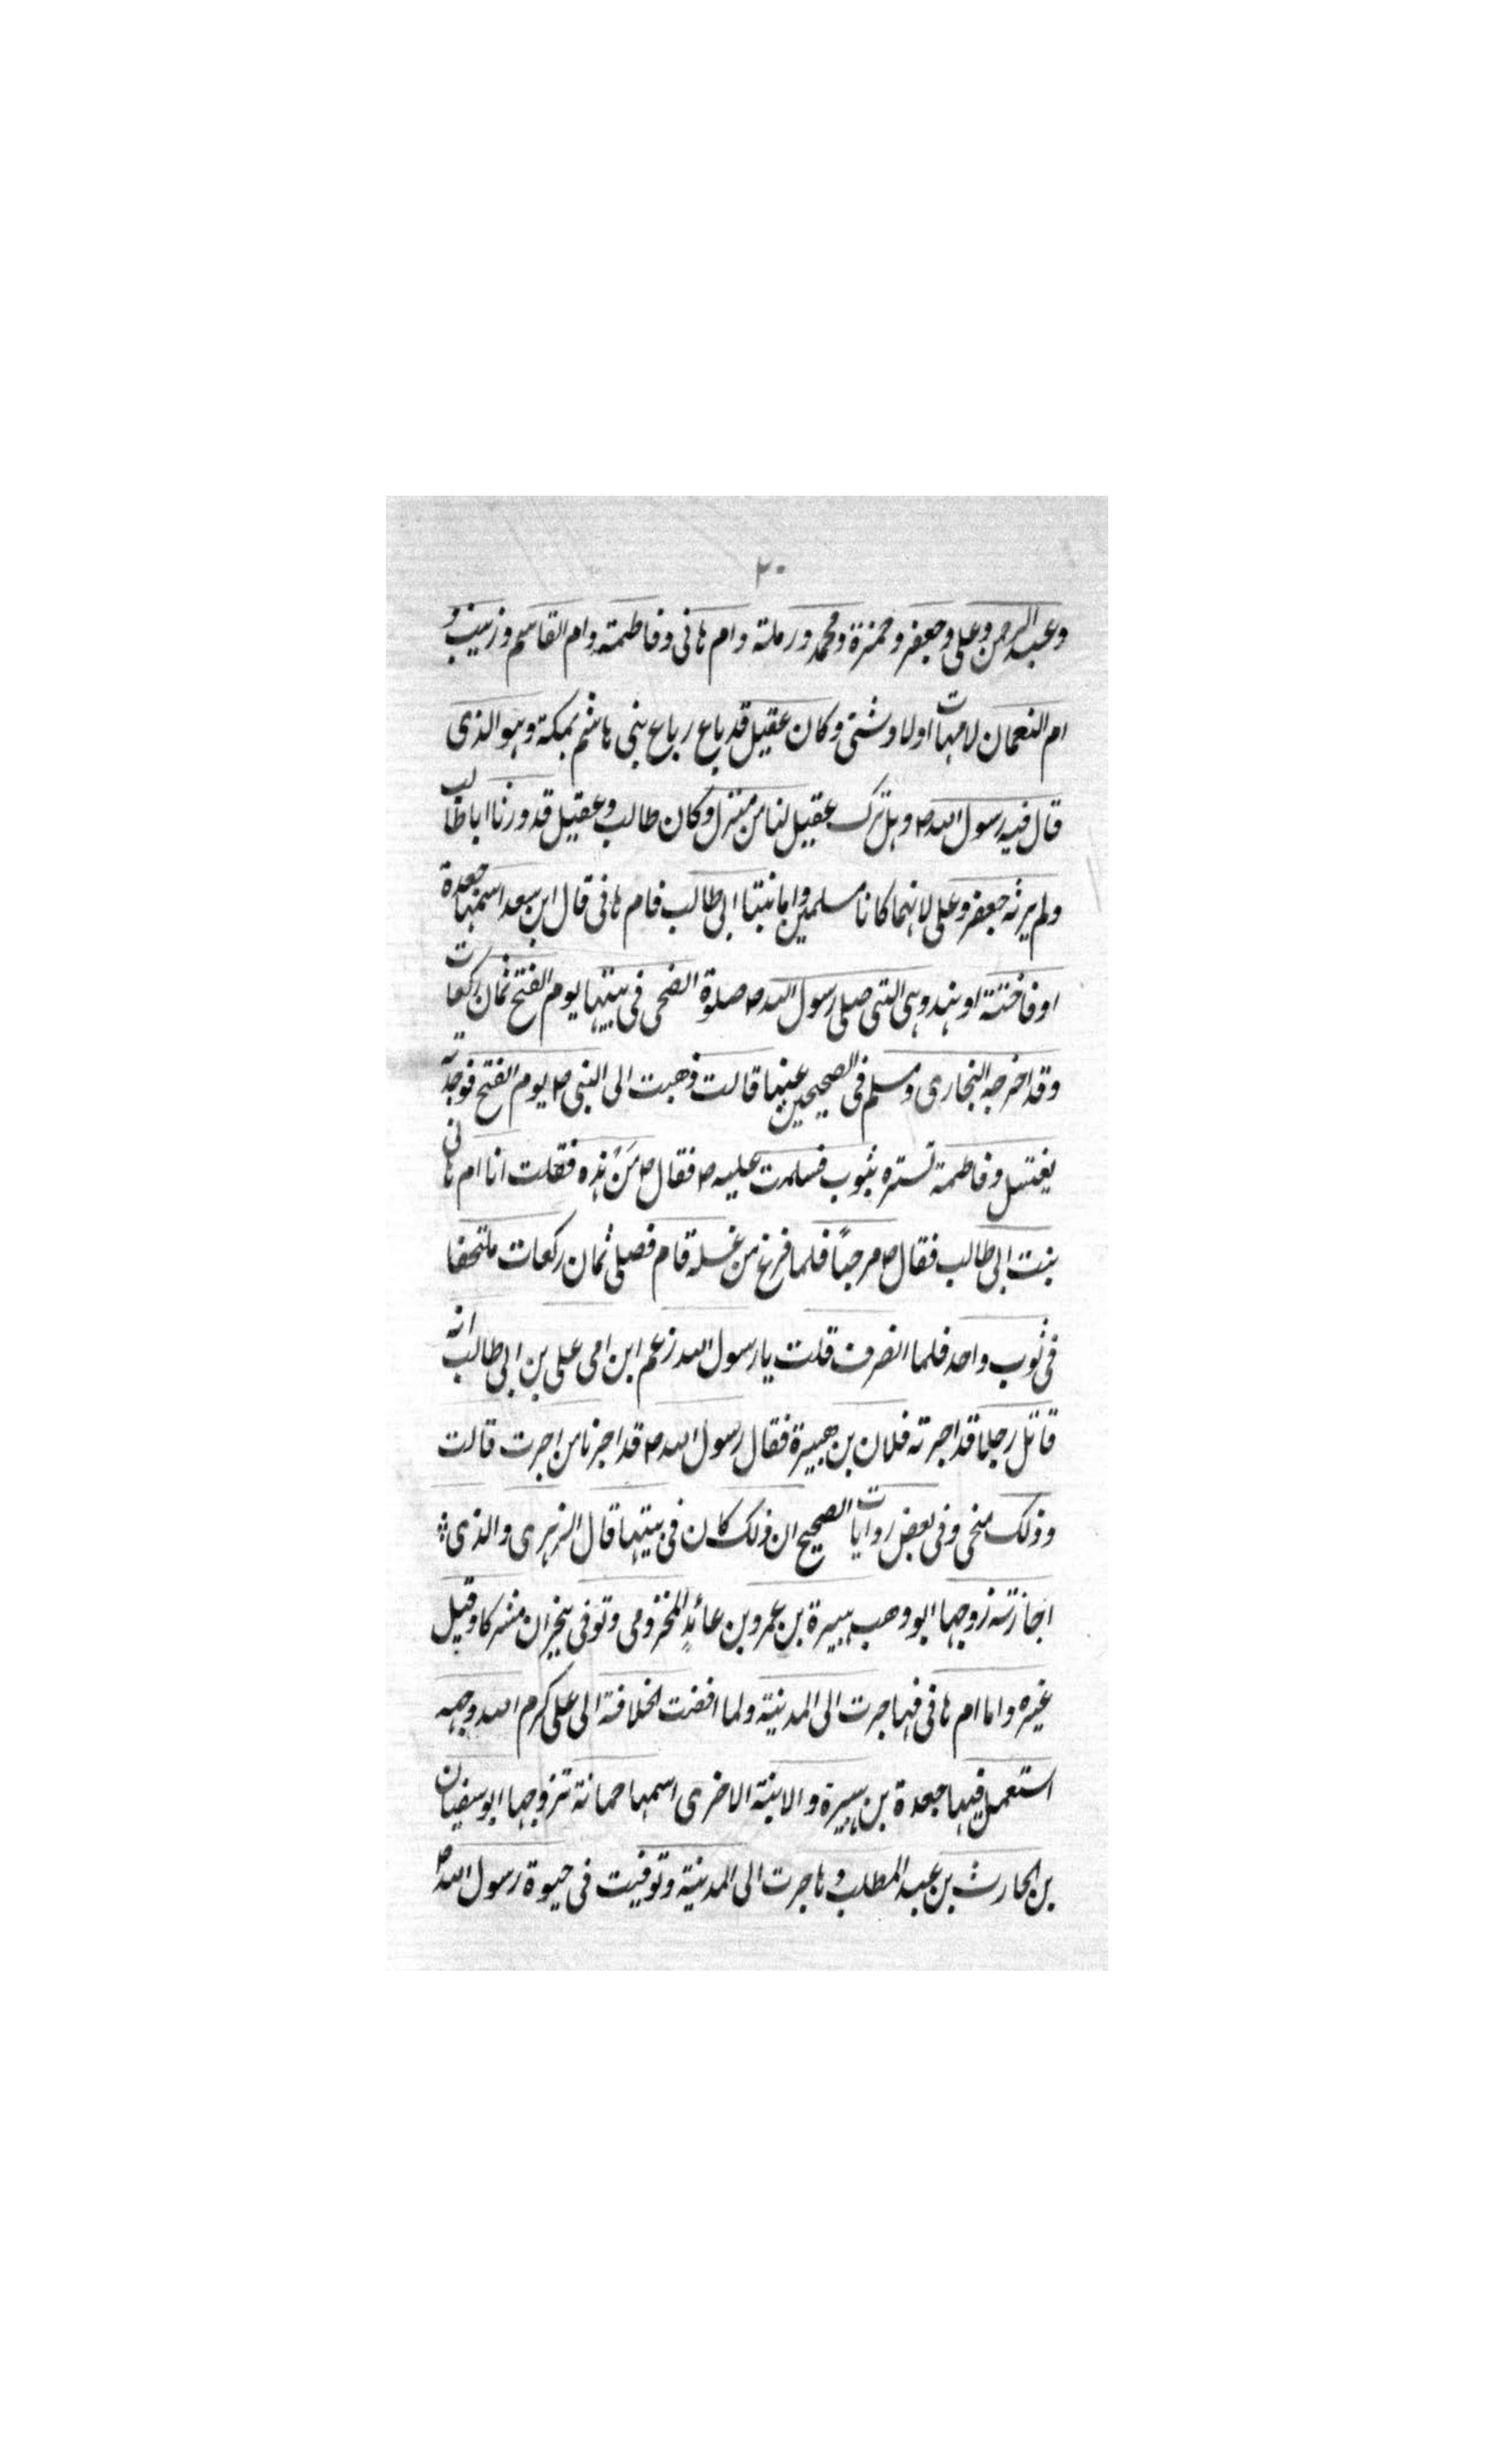 ٢٠
وعبد الرحمن وعلى وجعفر وحمزة ومحمد ورملة وام هانى وفاطمة وام القاسم وزينب و
ام النعمان لامهات اولاد شتى وكان عقيل قد باع رباع بنى هاشم بمكة وهو الذى
قال فيه رسول الله ص وهل ترك عقيل لنا من منزل وكان طالب وعقيل قد ورثا ابا طالب
ولم يرثه جعفر وعلى لانهما كانا مسلمين واما بنتا ابى طالب فام هانى قال ابن سعد اسمها جعدة
او فاختة او هند وهى التى صلى رسول الله ص صلوة الضحى فى بيتها يوم الفتح ثمان ركعات
وقد اخرجه البخارى ومسلم فى الصحيحين عنها قالت ذهبت الى النبى ص يوم الفتح فوجدته
يغتسل وفاطمة تستره بثوب فسلمت عليه ص فقال ص مَنْ هذه فقلت انا ام هانى
بنت ابى طالب فقال ص مرحبًا فلما فرغ من غسله قام فصلى ثمان ركعات ملتحفا
فى ثوب واحد فلما انصرف قلت يا رسول الله زعم ابن امى على بن ابى طالب انه
قاتل رجلا قد اجرته فلان بن هبيرة فقال رسول الله ص قد اجرنا من اجرت قالت
وذلك ضحى وفى بعض روايات الصحيح ان ذلك كان فى بيتها قال الزهرى والذى
اجازته زوجها ابو وهب هبيرة بن عمرو بن عائذ المخزومى وتوفى بنجران مشركا وقيل
غيره واما ام هانى فهاجرت الى المدينة ولما افضت الخلافة الى على كرم الله وجهه
استعمل فيها جعدة بن هبيرة والابنة الاخرى اسمها حمانة تزوجها ابو سفيان
بن الحارث بن عبد المطلب وهاجرت الى المدينة وتوفيت فى حيوة رسول الله ص